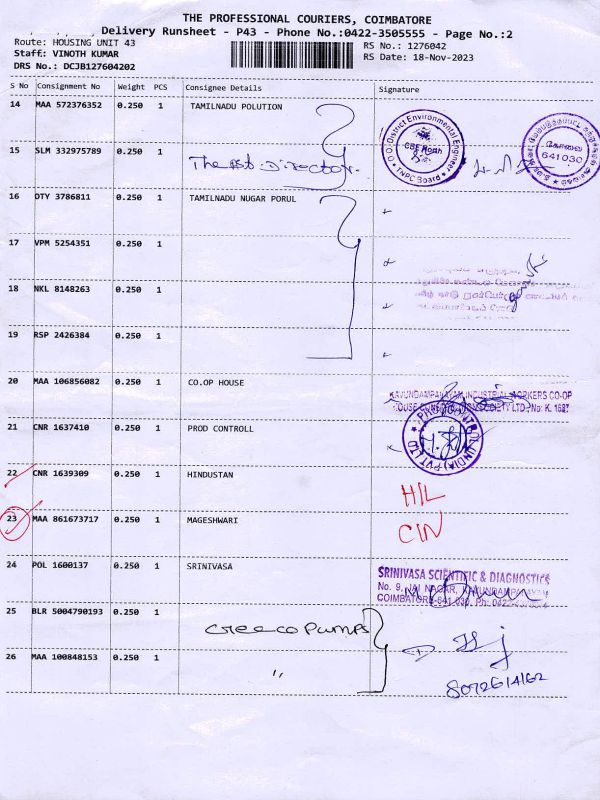 THE PROFESSIONAL COURIERS, COIMBATORE
Delivery Runsheet - P43 - Phone No.:0422-3505555 - Page No.:2
Route: HOUSING UNIT 43 RS No.: 1276042
Staff: VINOTH KUMAR RS Date: 18-Nov-2023
DRS No.: DCJB127604202
S No Consignment No Weight PCS Consignee Details Signature
14 MAA 572376352 0.250 1 TAMILNADU POLUTION
O/O District Environmental Engineer
CBE North
TNPC Board
கோவை
641 030
15 SLM 332975789 0.250 1 The Ast Director.
16 OTY 3786811 0.250 1 TAMILNADU NUGAR PORUL
17 VPM 5254351 0.250 1
18 NKL 8148263 0.250 1
19 RSP 2426384 0.250 1
20 MAA 106856082 0.250 1 CO.OP HOUSE
KAVUNDAMPALAYAM INDUSTRIAL WORKERS CO-OP
HOUSE SOCIETY LTD., No: K. 1687
21 CNR 1637410 0.250 1 PROD CONTROLL
(INDIA) PVT LTD
22 CNR 1639309 0.250 1 HINDUSTAN HIL
23 MAA 861673717 0.250 1 MAGESHWARI CIN
24 POL 1600137 0.250 1 SRINIVASA
SRINIVASA SCIENTIFIC & DIAGNOSTICS
No. 9, JAI NAGAR, KAVUNDAMPALAYAM
COIMBATORE-641 030, Ph: 0422
25 BLR 5004790193 0.250 1 Creeco Pumps
26 MAA 100848153 0.250 1 "
8072614162